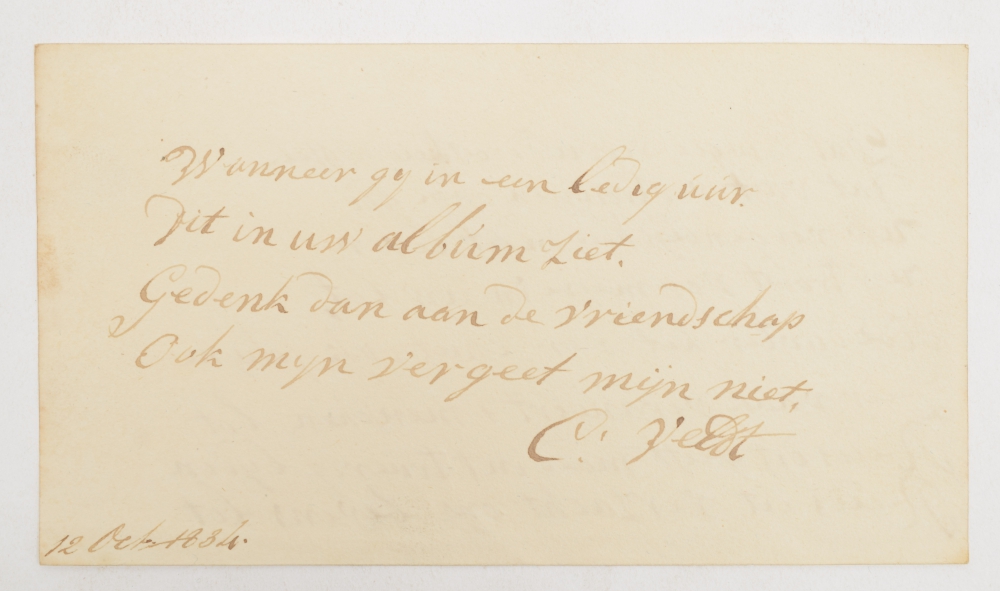 Wanneer gy in een ledig uur.
Dit in uw album ziet.
Gedenk dan aan de vriendschap
Ook myn vergeet mijn niet.
C: Veldt
12 Oct 1834.